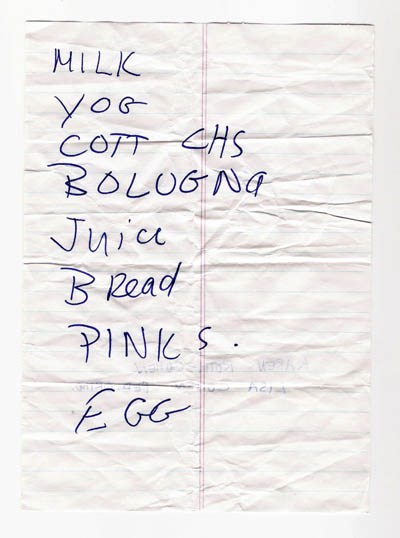 MILK
YOG
COTT CHS
BOLUGNA
Juice
Bread
PINKS.
EGG